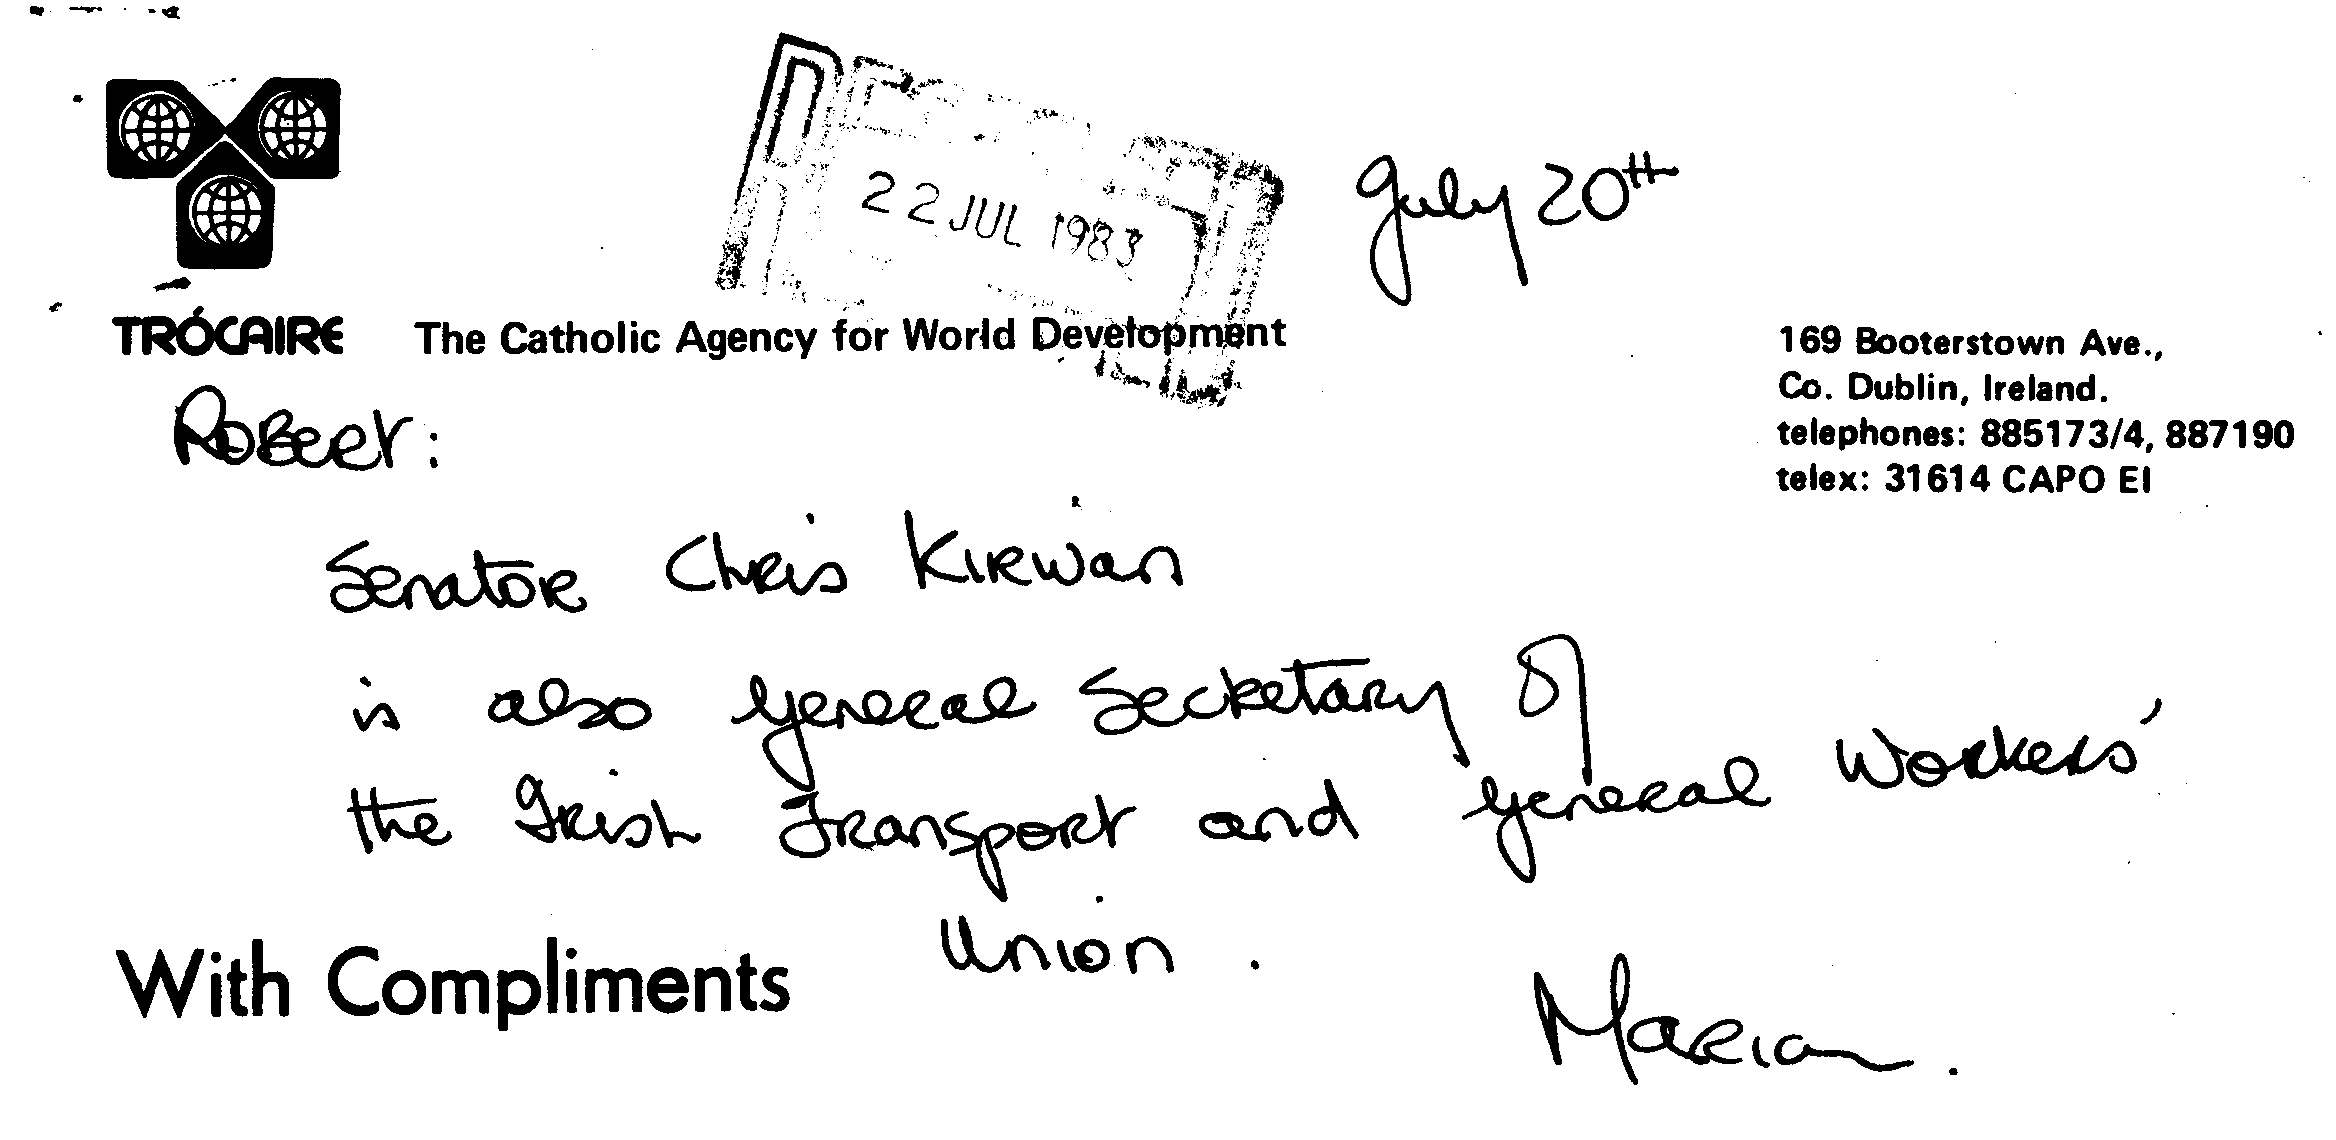 RECEIVED
22 JUL 1983
July 20th
TRÓCAIRE The Catholic Agency for World Development
169 Booterstown Ave.,
Co. Dublin, Ireland.
telephones: 885173/4, 887190
telex: 31614 CAPO EI
Robert:
Senator Chris Kirwan
is also General Secretary of
the Irish Transport and General Workers'
Union.
With Compliments
Marian.